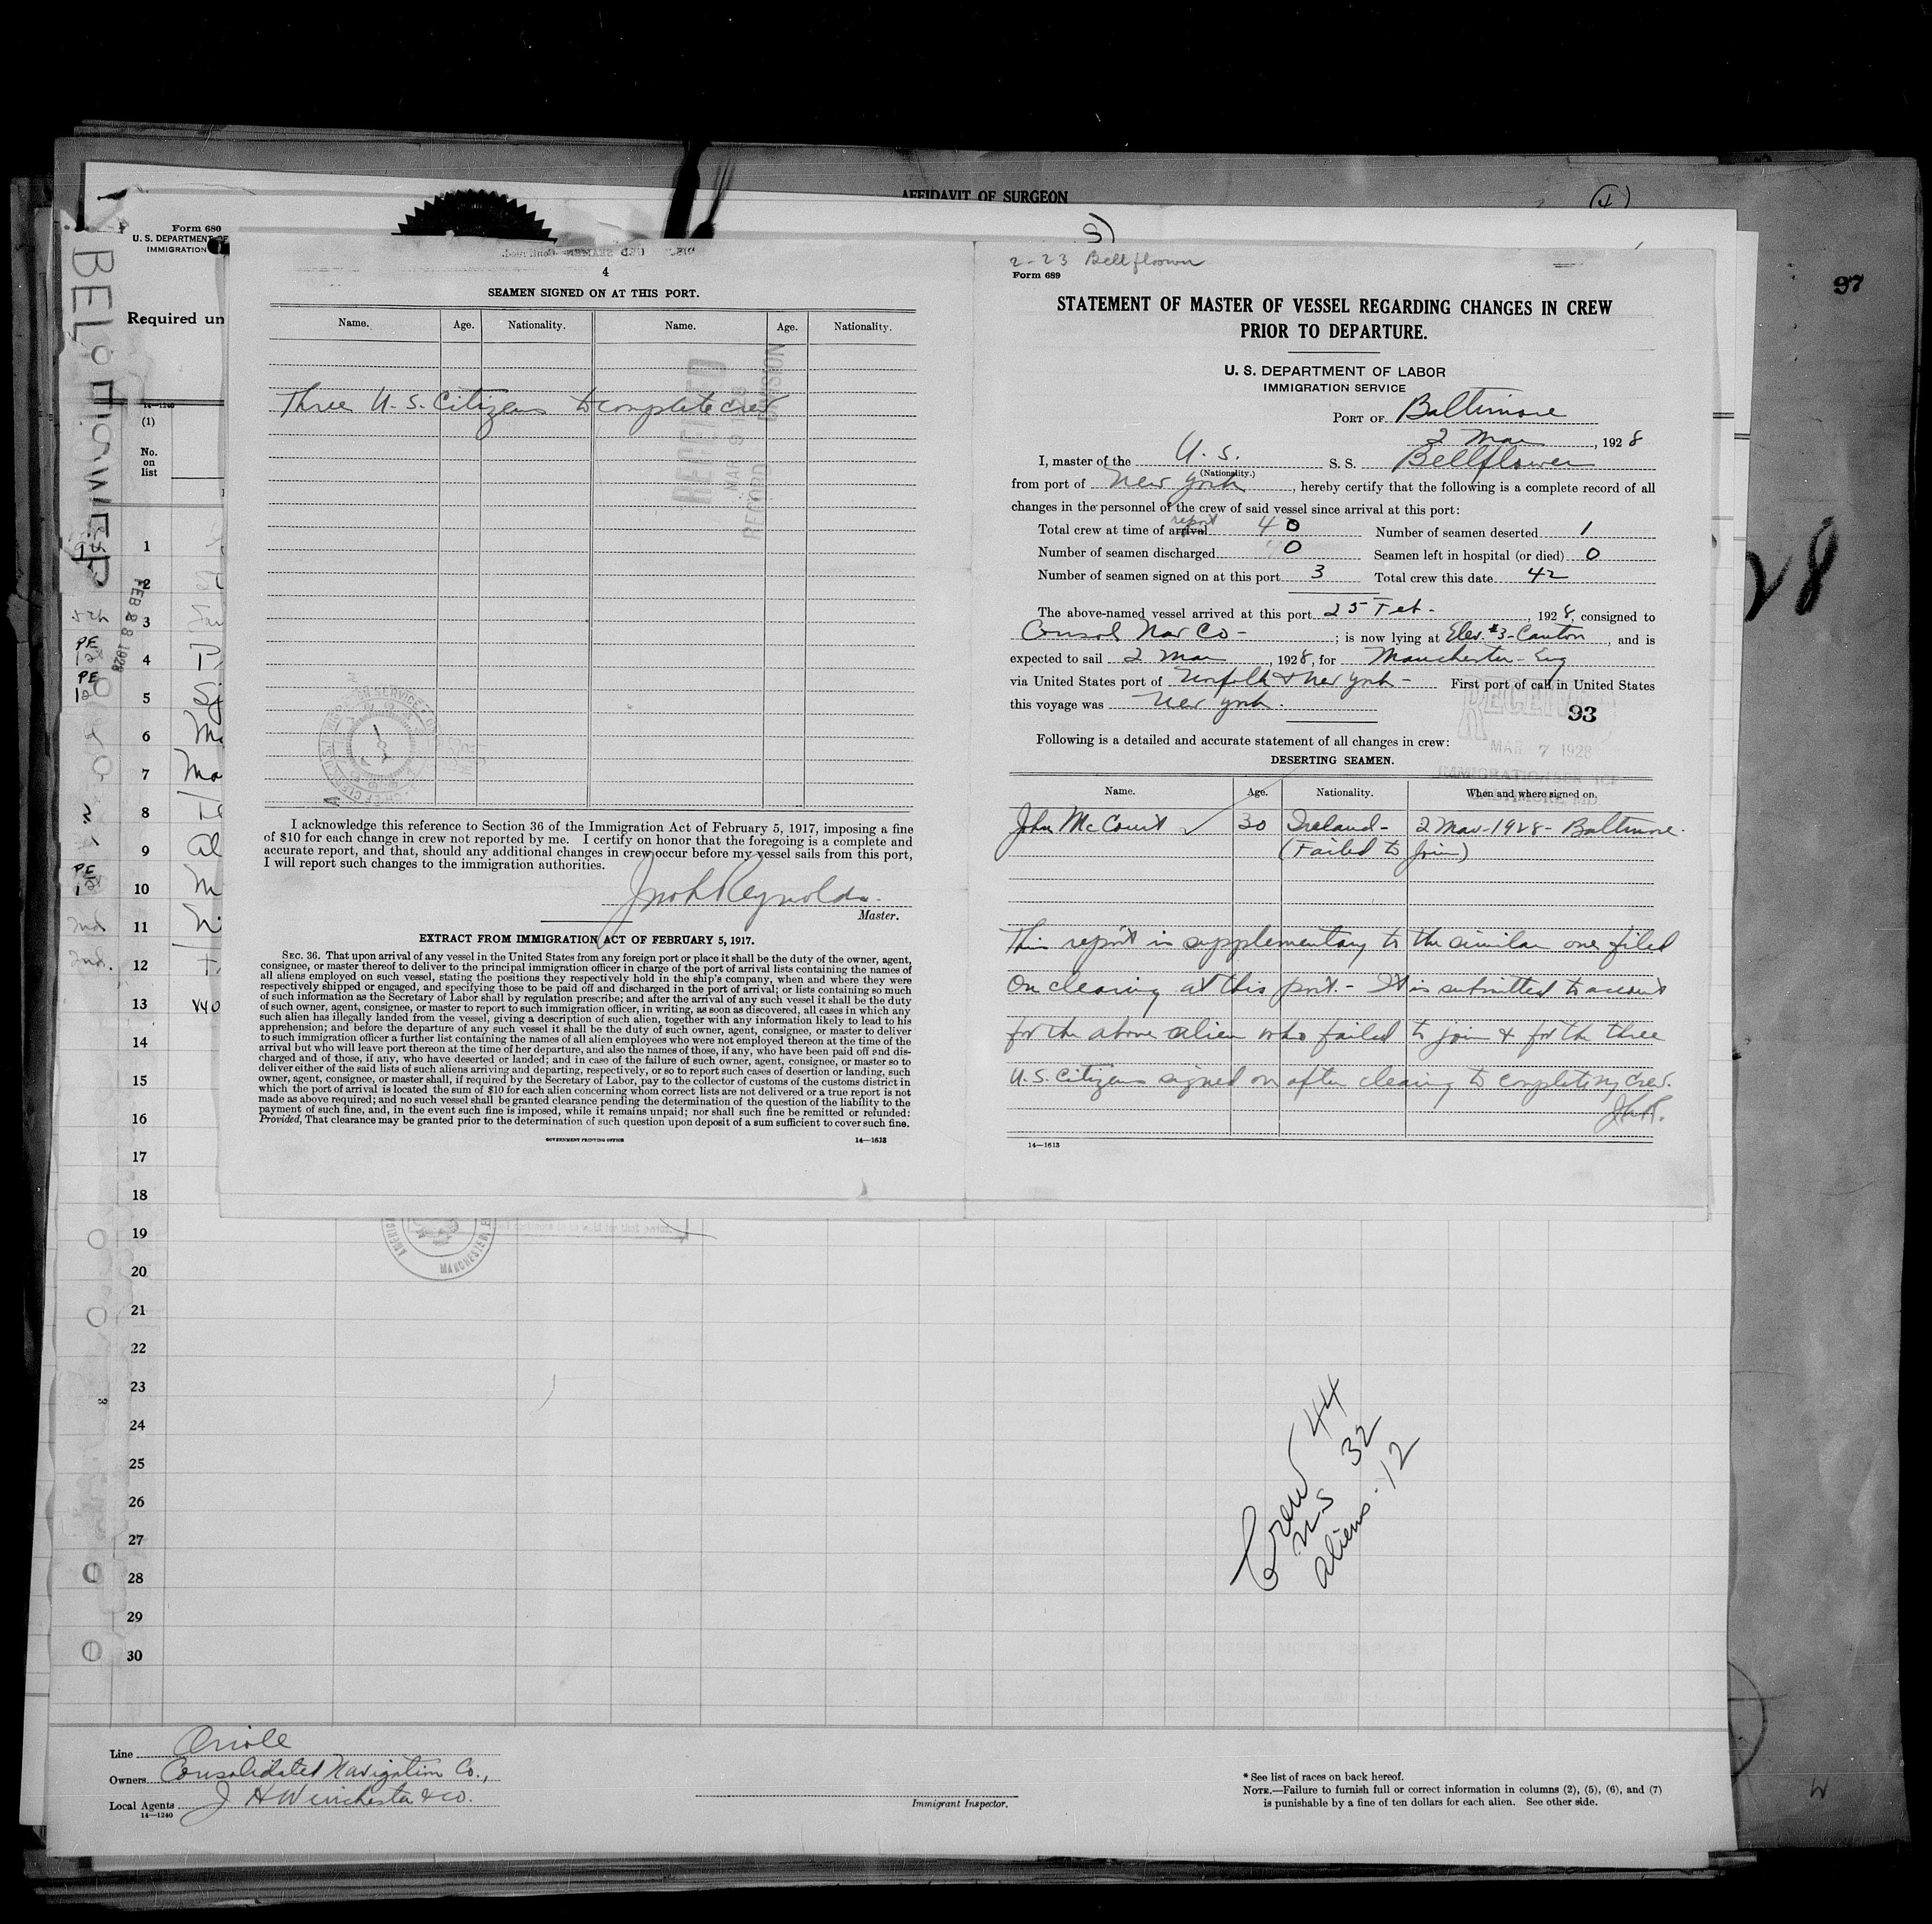 AFFIDAVIT OF SURGEON
97
Form 680
U. S. DEPARTMENT OF
IMMIGRATION
Required un
14—1240
(1)
No.
on
list
FEB 28 1928
1
2
3
4
5
6
7
8
9
10
11
12
13
14
15
16
17
18
19
20
21
22
23
24
25
26
27
28
29
30
4
SEAMEN SIGNED ON AT THIS PORT.
Name. Age. Nationality. Name. Age. Nationality.
Three U. S. Citizens to complete crew
RECEIVED
MAR 9 1928
RECORD DIVISION
I acknowledge this reference to Section 36 of the Immigration Act of February 5, 1917, imposing a fine
of $10 for each change in crew not reported by me. I certify on honor that the foregoing is a complete and
accurate report, and that, should any additional changes in crew occur before my vessel sails from this port,
I will report such changes to the immigration authorities.
Jno h Reynolds.
Master.
EXTRACT FROM IMMIGRATION ACT OF FEBRUARY 5, 1917.
SEC. 36. That upon arrival of any vessel in the United States from any foreign port or place it shall be the duty of the owner, agent,
consignee, or master thereof to deliver to the principal immigration officer in charge of the port of arrival lists containing the names of
all aliens employed on such vessel, stating the positions they respectively hold in the ship's company, when and where they were
respectively shipped or engaged, and specifying those to be paid off and discharged in the port of arrival; or lists containing so much
of such information as the Secretary of Labor shall by regulation prescribe; and after the arrival of any such vessel it shall be the duty
of such owner, agent, consignee, or master to report to such immigration officer, in writing, as soon as discovered, all cases in which any
such alien has illegally landed from the vessel, giving a description of such alien, together with any information likely to lead to his
apprehension; and before the departure of any such vessel it shall be the duty of such owner, agent, consignee, or master to deliver
to such immigration officer a further list containing the names of all alien employees who were not employed thereon at the time of the
arrival but who will leave port thereon at the time of her departure, and also the names of those, if any, who have been paid off and dis-
charged and of those, if any, who have deserted or landed; and in case of the failure of such owner, agent, consignee, or master so to
deliver either of the said lists of such aliens arriving and departing, respectively, or so to report such cases of desertion or landing, such
owner, agent, consignee, or master shall, if required by the Secretary of Labor, pay to the collector of customs of the customs district in
which the port of arrival is located the sum of $10 for each alien concerning whom correct lists are not delivered or a true report is not
made as above required; and no such vessel shall be granted clearance pending the determination of the question of the liability to the
payment of such fine, and, in the event such fine is imposed, while it remains unpaid; nor shall such fine be remitted or refunded:
Provided, That clearance may be granted prior to the determination of such question upon deposit of a sum sufficient to cover such fine.
GOVERNMENT PRINTING OFFICE 14—1613
2-23 Bellflower
Form 689
STATEMENT OF MASTER OF VESSEL REGARDING CHANGES IN CREW
PRIOR TO DEPARTURE.
U. S. DEPARTMENT OF LABOR
IMMIGRATION SERVICE
PORT OF Baltimore
2 Mar, 1928
I, master of the U. S. S. S. Bellflower
(Nationality.)
from port of New York, hereby certify that the following is a complete record of all
changes in the personnel of the crew of said vessel since arrival at this port:
report
Total crew at time of arrival 40 Number of seamen deserted 1
Number of seamen discharged 0 Seamen left in hospital (or died) 0
Number of seamen signed on at this port 3 Total crew this date 42
The above-named vessel arrived at this port 25 Feb., 1928, consigned to
Consol Nav Co -; is now lying at Elev. #3-Canton, and is
expected to sail 2 Mar, 1928, for Manchester - Eng
via United States port of Norfolk & New York - First port of call in United States
this voyage was New York.
93
RECEIVED
MAR 7 1928
IMMIGRATION SERVICE
BALTIMORE, MD.
Following is a detailed and accurate statement of all changes in crew:
DESERTING SEAMEN.
Name. Age. Nationality. When and where signed on.
John McCourt 30 Ireland - 2 Mar-1928 - Baltimore.
(Failed to join)
This report is supplementary to the similar one filed
on clearing at this port. - It is submitted to account
for the above alien who failed to join & for the three
U.S. Citizens signed on after clearing to completing crew.
JhR.
14—1613
Crew 44
U S 32
aliens - 12
Line Oriole
Owners Consolidated Navigation Co.,
Local Agents J H Winchester & co.
14—1240
Immigrant Inspector.
* See list of races on back hereof.
NOTE.—Failure to furnish full or correct information in columns (2), (5), (6), and (7)
is punishable by a fine of ten dollars for each alien. See other side.